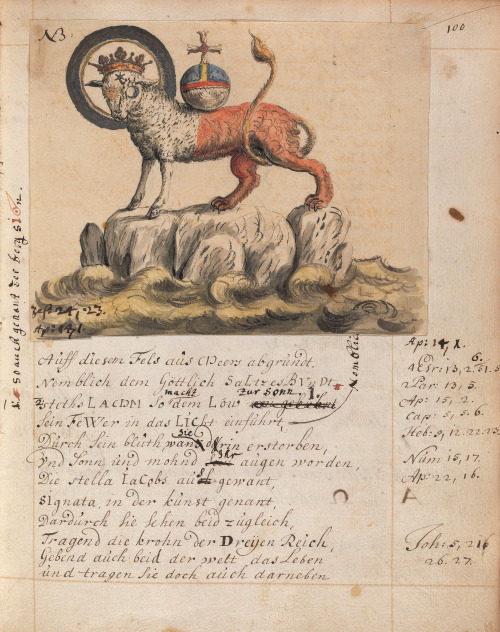 NB:
100
Jes: 24, 23.
Ap: 14, 1.
Auff diesem Fels aus Meers abgründt.
Nomblich dem Göttlich SaltzesBUNDt
stehts LAMM so dem Löw macht zur Sonn
Sein FeWer in das LICht einführt,
Durch Sein blüth wan Sie drin ersterben,
Vnd Sonn und mohnd Ihr augen worden,
Die stella Iacobs auch gewant,
SIgnata, in der kunst genant,
Dardurch sie sehen beid zugleich,
Tragend die krohn der Dreÿen Reich,
Gebend auch beid der welt das Leben
und tragen sie doch auch darneben
Nomblich
auch genant der berg SIOn.
Ap: 14, 1.
6.
4 Esr: 13, 2. 5.
2 Par: 13, 5.
Ap: 15, 2.
Cap: 5, 5. 6.
Heb: 9, 12. 22. 23.
Num 15, 17.
Ap: 22, 16.
Joh: 5, 26
26. 27.